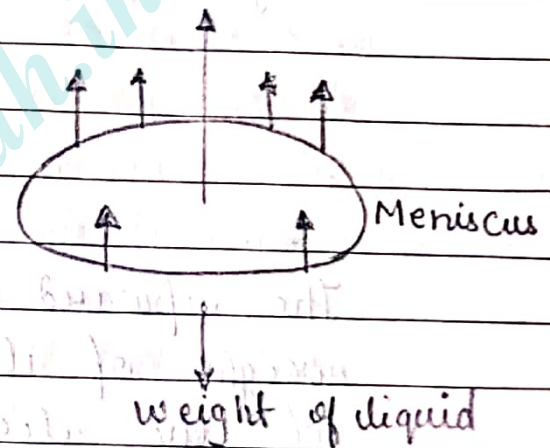 Meniscus
weight of liquid